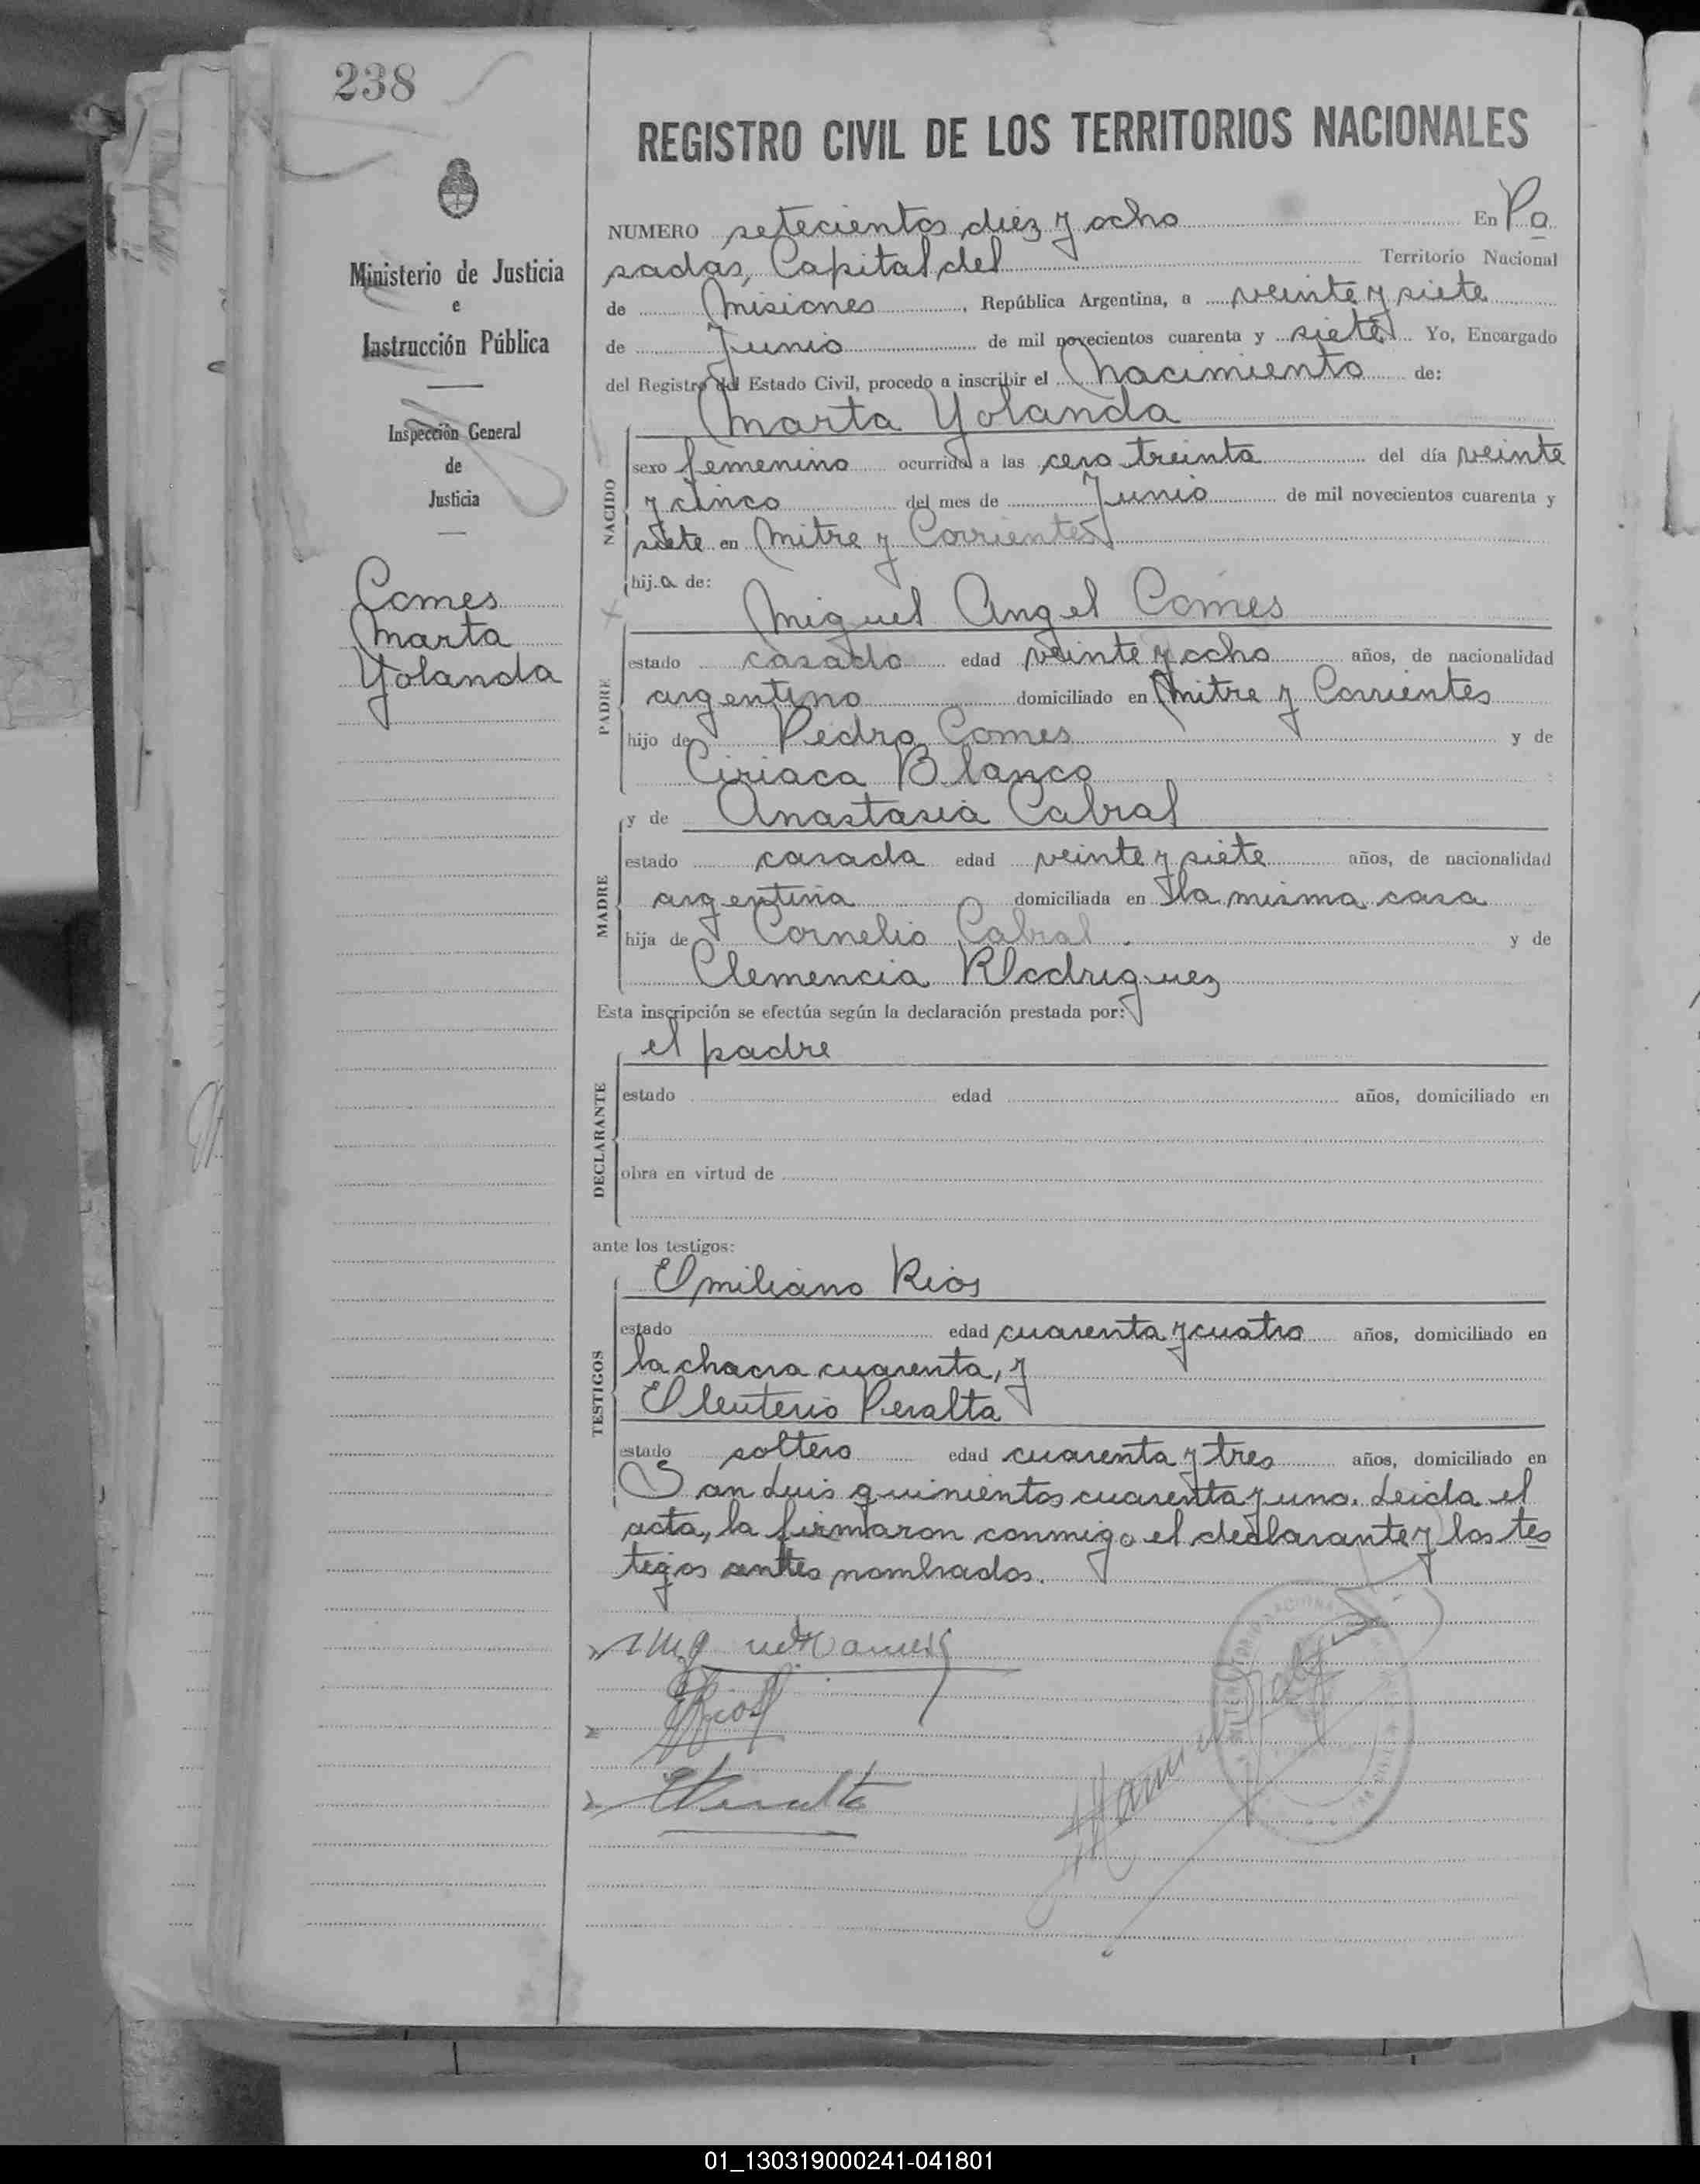 238
REGISTRO CIVIL DE LOS TERRITORIOS NACIONALES
Ministerio de Justicia
e
Instrucción Pública
Inspección General
de
Justicia
Comes
Marta
Yolanda
NUMERO setecientos diez y ocho En Po
sadas, Capital del Territorio Nacional
de Misiones, República Argentina, a veinte y siete
de Junio de mil novecientos cuarenta y siete Yo, Encargado
del Registro del Estado Civil, procedo a inscribir el Nacimiento de:
Marta Yolanda
NACIDO
sexo femenino ocurrido a las cero treinta del día veinte
y cinco del mes de Junio de mil novecientos cuarenta y
siete en Mitre y Corrientes
hij.a de:
Miguel Angel Comes
PADRE
estado casado edad veinte y ocho años, de nacionalidad
argentino domiciliado en Mitre y Corrientes
hijo de Pedro Comes y de
Ciriaca Blanco
y de Anastasia Cabral
MADRE
estado casada edad veinte y siete años, de nacionalidad
argentina domiciliada en la misma casa
hija de Cornelio Cabral y de
Clemencia Rodriguez
Esta inscripción se efectúa según la declaración prestada por:
el padre
DECLARANTE
estado edad años, domiciliado en
obra en virtud de
ante los testigos:
Emiliano Rios
TESTIGOS
estado edad cuarenta y cuatro años, domiciliado en
la chacra cuarenta, y
Eleuterio Peralta
estado soltero edad cuarenta y tres años, domiciliado en
San Luis quinientos cuarenta y uno. Leida el
acta, la firmaron conmigo el declarante y los tes
tigos antes nombrados.
ERios
EPeralta
01_130319000241-041801